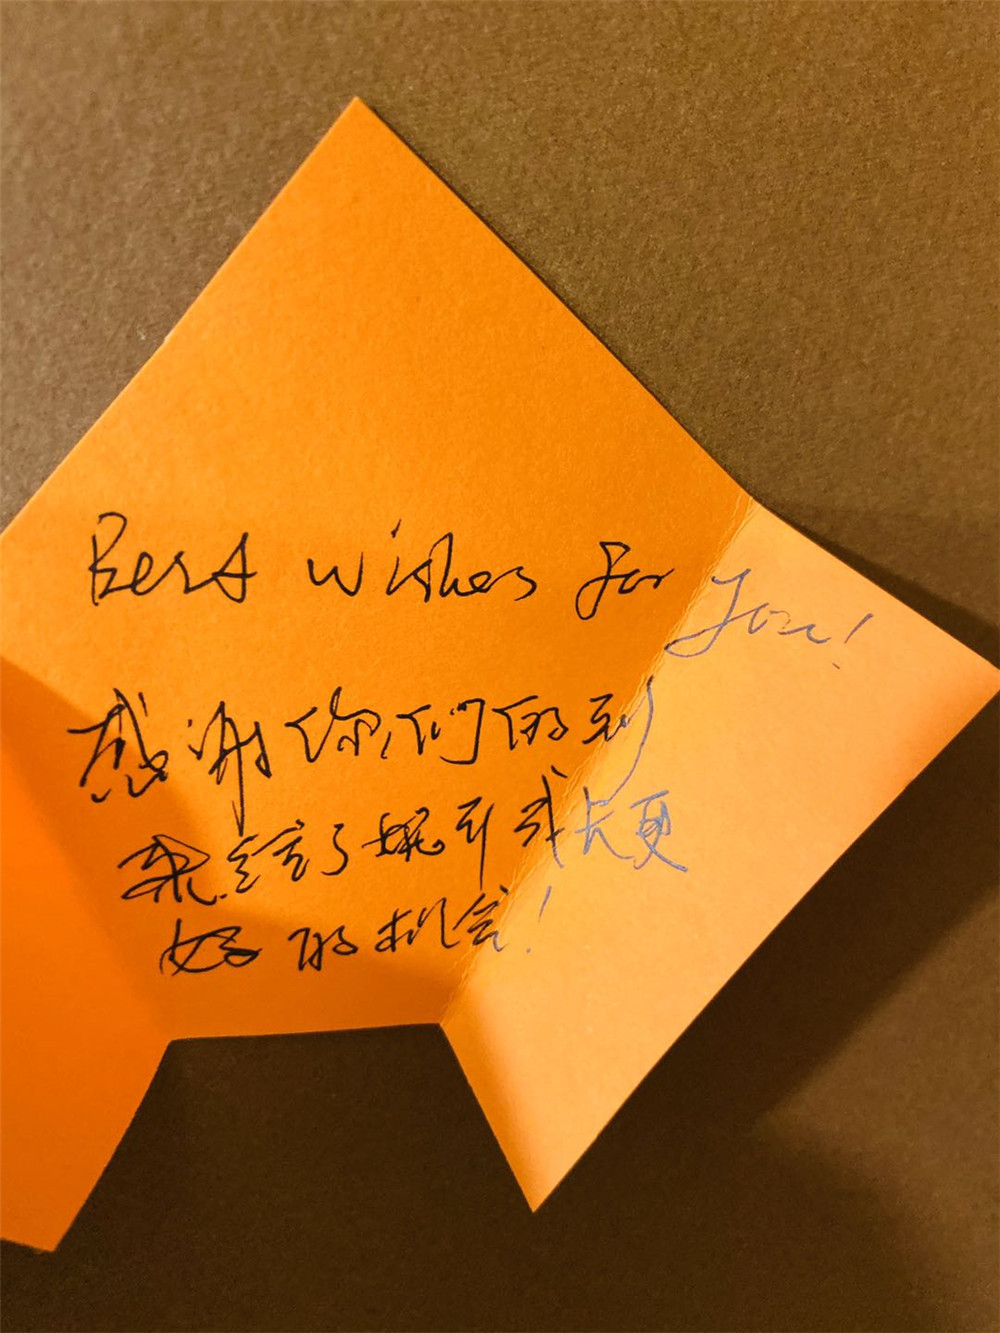 Best wishes for you!
感谢你们的到
来 了 成长更
好的机会!